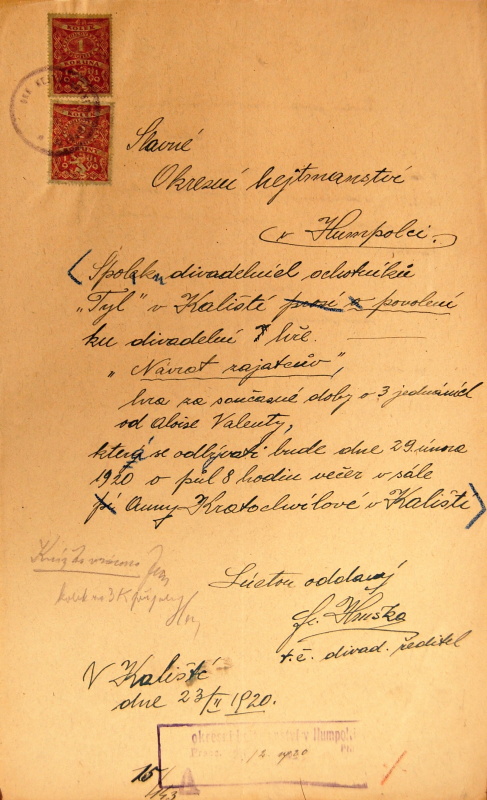 KOLEK
1
KORUNA
KOLEK
KORUNA
Slavné
Okresní hejtmanství
v Humpolci.
Spolek divadelních ochotníků
„Tyl" v Kališti prosí o povolení
ku divadelní hře.
„Návrat zajatcův",
hra za současné doby o 3 jednáních
od Aloise Valenty,
která se odbývati bude dne 29. února
1920 o půl 8 hodin večer v sále
pí Anny Kratochvílové v Kališti
kolek na 3 K
S úctou oddaný
Fr. Hruška
t. č. divad. ředitel
V Kališti
dne 23/II 1920.
okresní hejtmanství v Humpolci
1920
15/